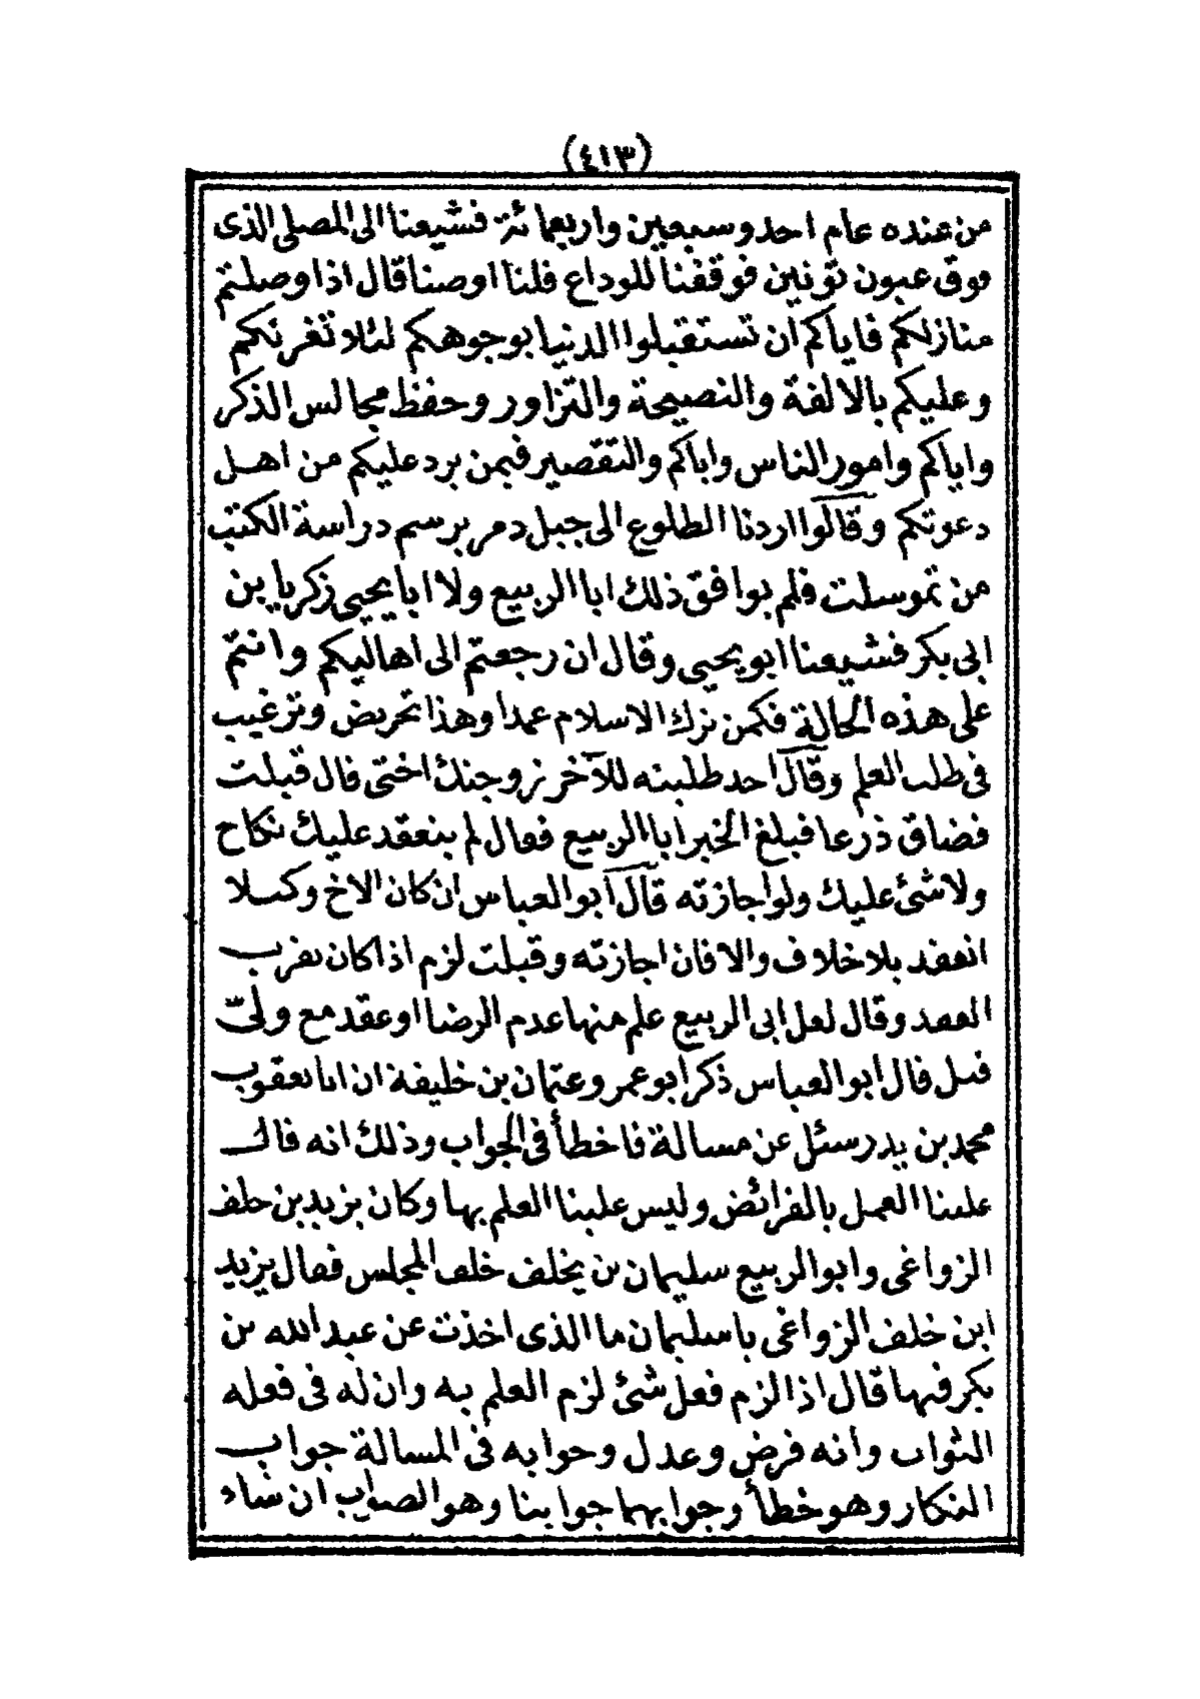 (٤١٣)
من عنده عام احد وسبعين واربعمائة فشيعنا الى المصلى الذى
فوق عيون تونين فوقفنا للوداع قلنا اوصنا قال اذا وصلتم
منازلكم فاياكم ان تستقبلوا الدنيا بوجوهكم لئلا تغرنكم
وعليكم بالالفة والنصيحة والتزاور وحفظ مجالس الذكر
واياكم وامور الناس واياكم والتقصير فيمن يرد عليكم من اهل
دعوتكم وقالوا اردنا الطلوع الى جبل دمر برسم دراسة الكتب
من تموسلت فلم يوافق ذلك ابا الربيع ولا ابا يحيى زكريا بن
ابى بكر فشيعنا ابو يحيى وقال ان رجعتم الى اهاليكم وانتم
على هذه الحالة فكمن ترك الاسلام عمدا وهذا تحريض وترغيب
فى طلب العلم وقال احد طلبته للآخر زوجتك اختى قال قبلت
فضاق ذرعا فبلغ الخبر ابا الربيع فقال لم ينعقد عليك نكاح
ولا شئ عليك ولو اجازته قال ابو العباس ان كان الاخ وكيلا
انعقد بلا خلاف والا فان اجازته وقبلت لزم اذا كان بقرب
العقد وقال لعل ابى الربيع علم منها عدم الرضا او عقد مع ولىّ
قبل قال ابو العباس ذكر ابو عمر وعثمان بن خليفة ان ابا يعقوب
محمد بن يدر سئل عن مسالة فاخطأ فى الجواب وذلك انه قال
علينا العمل بالفرائض وليس علينا العلم بها وكان يزيد بن خلف
الزواغى وابو الربيع سليمان بن يخلف خلف المجلس فقال يزيد
ابن خلف الزواغى يا سليمان ما الذى اخذت عن عبد الله بن
بكر فيها قال اذا لزم فعل شئ لزم العلم به وان له فى فعله
الثواب وانه فرض وعدل وجوابه فى المسالة جواب
النكار وهو خطأ وجوابهما جوابنا وهو الصواب ان شاء